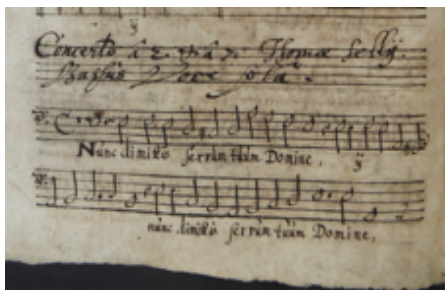 ij
Concerto â 2. â 7. Thomæ Sellij.
Bassus Voce sola.
Nunc dimitis servum tuum Domine, ij
nunc dimitis servum tuum Domine,